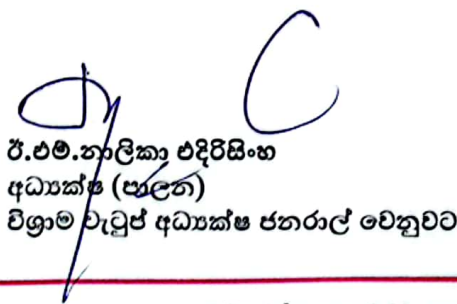 ඊ.එම්.නාලිකා එදිරිසිංහ
අධ්‍යක්ෂ (පාලන)
විශ්‍රාම වැටුප් අධ්‍යක්ෂ ජනරාල් වෙනුවට